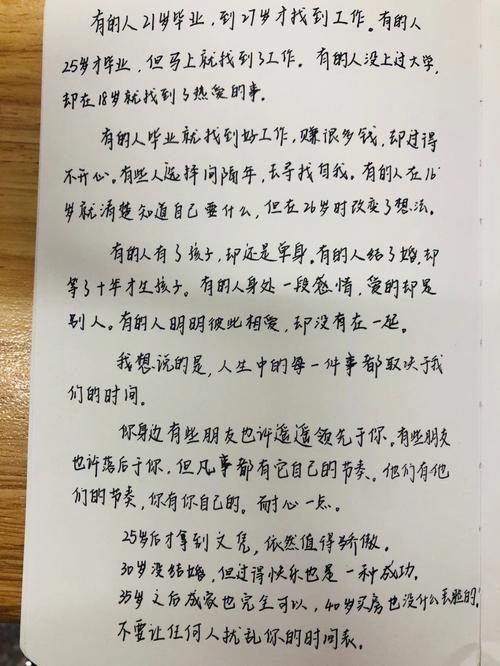 有的人21岁毕业，到27岁才找到工作。有的人
25岁才毕业，但马上就找到了工作。有的人没上过大学，
却在18岁就找到了热爱的事。
有的人毕业就找到好工作，赚很多钱，却过得
不开心。有些人选择间隔年，去寻找自我。有的人在16
岁就清楚知道自己要什么，但在26岁时改变了想法。
有的人有了孩子，却还是单身。有的人结了婚，却
等了十年才生孩子。有的人身处一段感情，爱的却是
别人。有的人明明彼此相爱，却没有在一起。
我想说的是，人生中的每一件事都取决于我
们的时间。
你身边有些朋友也许遥遥领先于你。有些朋友
也许落后于你，但凡事都有它自己的节奏。他们有他
们的节奏，你有你自己的。耐心一点。
25岁后才拿到文凭，依然值得骄傲。
30岁没结婚，但过得快乐也是一种成功。
35岁之后成家也完全可以，40岁买房也没什么丢脸的。
不要让任何人扰乱你的时间表。